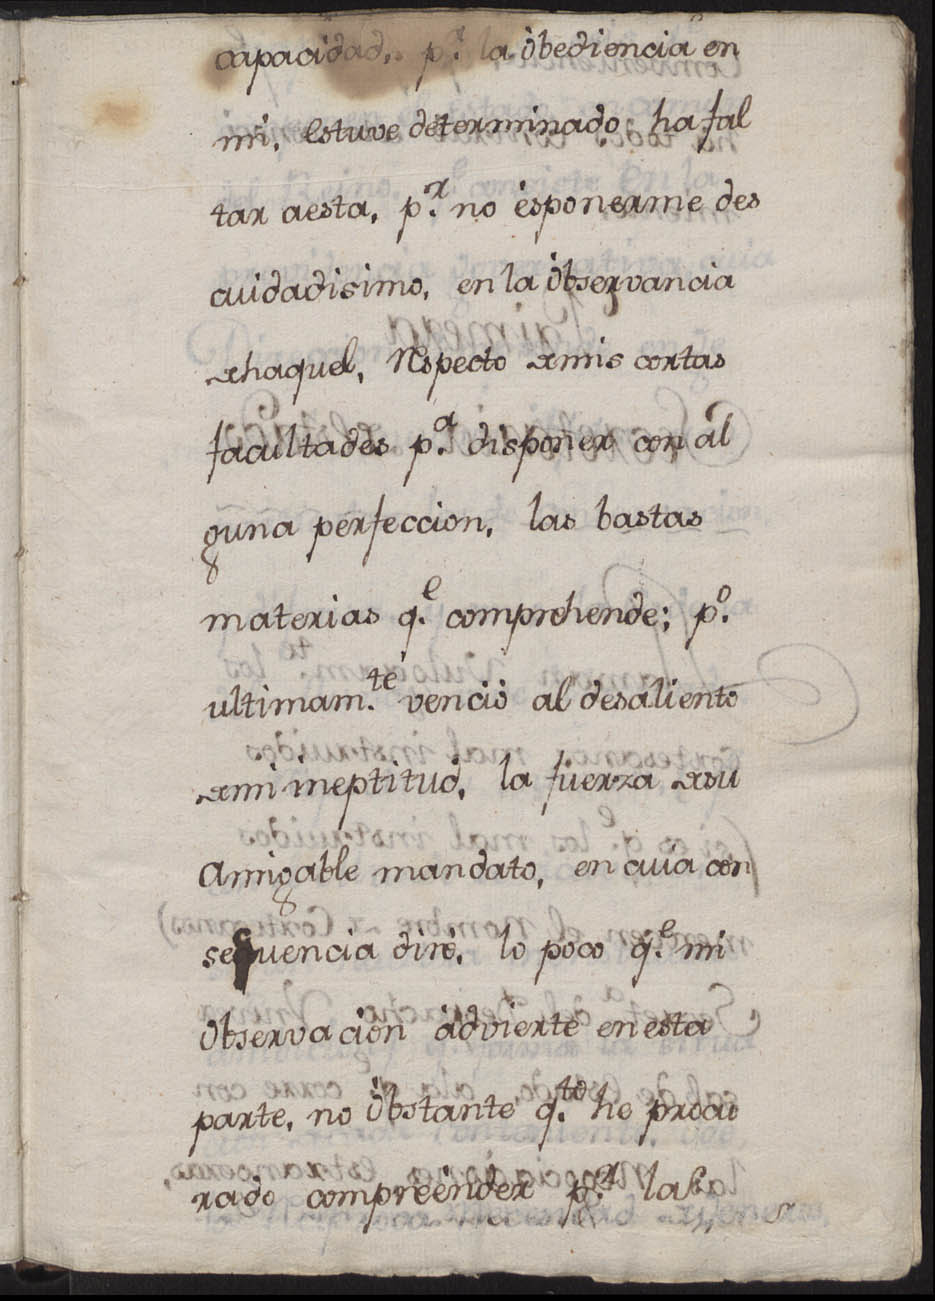 capacidad, p.ª la obediencia en
mi, estuve determinado, ha fal
tar aesta, p.r no esponerme des
cuidadisimo, en la observancia
dhaquel, respecto dmis cortas
facultades p.ª disponer con al
guna perfeccion, las bastas
materias q.e comprehende; p.o
ultimam.te venció al desaliento
dmi ineptitud, la fuerza dsu
Amigable mandato, en cuia con
sequencia diré, lo poco q.e mi
observacion advierte en esta
parte, no obstante q.to he procu
rado compreender p.ª